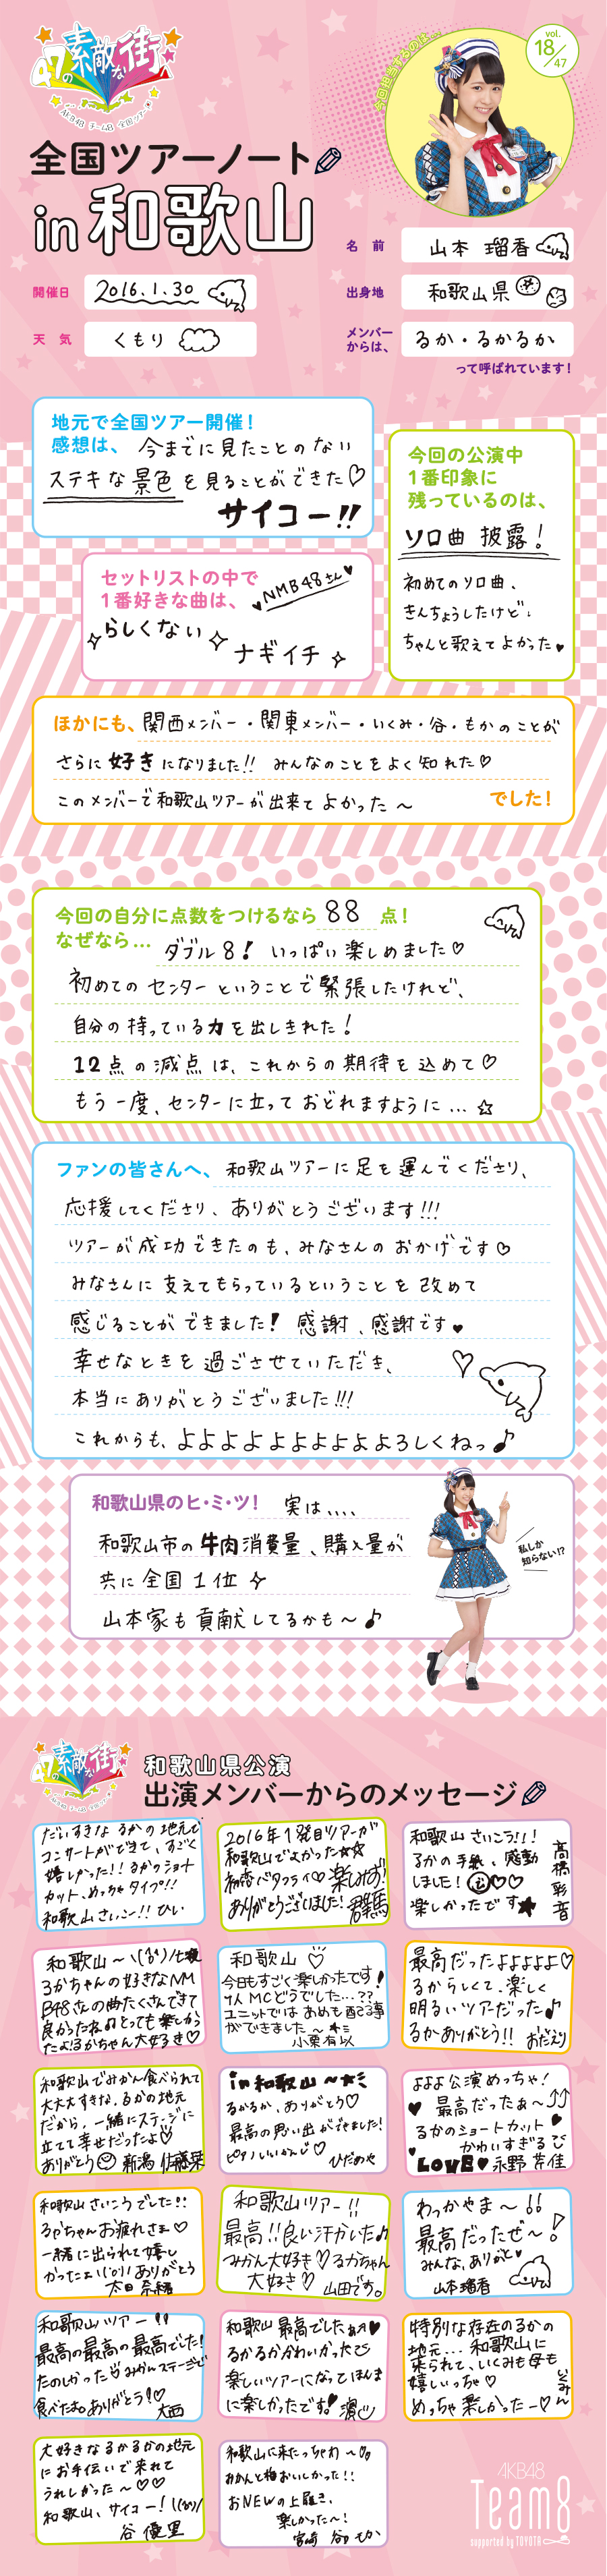 47の素敵な街へ
AKB48 チーム8 全国ツアー
今回担当するのは…
vol.
18/47
全国ツアーノート
in 和歌山
名 前 山本 瑠香
開催日 2016.1.30
出身地 和歌山県
天 気 くもり
メンバーからは、 るか・るかるか
って呼ばれています!
地元で全国ツアー開催!
感想は、 今までに見たことのない
ステキな景色を見ることができた♡
サイコー!!
今回の公演中
1番印象に
残っているのは、
ソロ曲 披露!
初めてのソロ曲、
きんちょうしたけど、
ちゃんと歌えてよかった♥
セットリストの中で
1番好きな曲は、
♥NMB48さん♥
らしくない
ナギイチ
ほかにも、関西メンバー・関東メンバー・いくみ・谷・もかのことが
さらに好きになりました!! みんなのことをよく知れた♡
このメンバーで和歌山ツアーが出来てよかった〜
でした!
今回の自分に点数をつけるなら 88 点!
なぜなら… ダブル8! いっぱい楽しめました♡
初めてのセンターということで緊張したけれど、
自分の持っている力を出しきれた!
12点の減点は、これからの期待を込めて♡
もう一度、センターに立っておどれますように…☆
ファンの皆さんへ、和歌山ツアーに足を運んでくださり、
応援してくださり、ありがとうございます!!!
ツアーが成功できたのも、みなさんのおかげです♡
みなさんに支えてもらっているということを改めて
感じることができました! 感謝、感謝です♥
幸せなときを過ごさせていただき、
本当にありがとうございました!!!
これからも、よよよよよよよよよよろしくねっ♪
和歌山県のヒ・ミ・ツ! 実は、、、、
和歌山市の牛肉消費量、購入量が
共に全国1位
山本家も貢献してるかも〜♪
私しか
知らない!?
47の素敵な街へ
AKB48 チーム8 全国ツアー
和歌山県公演
出演メンバーからのメッセージ
だいすきなるかの地元で
コンサートができて、すごく
嬉しかった!!るかのショート
カット、めっちゃタイプ!!
和歌山さいこー!! ひい
2016年1発目ツアーが
和歌山でよかった☆☆
ありがとうございました! 群馬
和歌山さいこう!!!
るかの手紙、感動
しました!♡♡
楽しかったです★
高橋彩音
和歌山〜
るかちゃんの好きなNM
B48さんの曲たくさんできて
良かったね とっても楽しかっ
たよ!るかちゃん大好き♡
和歌山♡
今日もすごく楽しかったです!
1人MCどうでした…??
ユニットではおめも
ができました〜
小栗有以
最高だったよよよよよ♡
るからしくて、楽しく
明るいツアーだった♪
るかありがとう!! おだえり
和歌山でみかん食べられて
大大大すきな、るかの地元
だから、一緒にステージに
立てて幸せだったよ♡
ありがとう 新潟 佐藤栞
in和歌山〜
るかるか、ありがとう♡
最高の思い出ができました!
♡ ひだめや
よよよ公演めっちゃ!
♥ 最高だったぁ〜⤴⤴
るかのショートカット♥
かわいすぎる
LOVE♥ 永野芹佳
和歌山さいこうでした!!
るかちゃんお疲れさま♡
一緒に出られて嬉し
かったよ ありがとう
太田奈緒
和歌山ツアー!!
最高!!良い汗かいた♪
みかん大好き♡るかちゃん
大好き♡ 山田です。
わっかやま〜!!
最高だったぜ〜!
みんな、ありがと♥
山本瑠香
和歌山ツアー!!
最高の最高の最高でした!
たのしかった みかんステージで
食べたね。ありがとう!♡
大西
和歌山最高でしたぁ♥
るかるかかわいかった
楽しいツアーになってほんま
に楽しかったです! 濵
特別な存在のるかの
地元… 和歌山に
来られて、いくみも母も
嬉しいっちゃ♡
めっちゃ楽しかったー♡
いくみん
大好きなるかるかの地元
にお手伝いで来れて
うれしかった〜♡♡
和歌山、サイコー!
谷 優里
和歌山に来たっちゃわ〜
みかんと梅おいしかった!!
おNEWの上履き、
楽しかった〜!
宮崎
AKB48
Team8
supported by TOYOTA